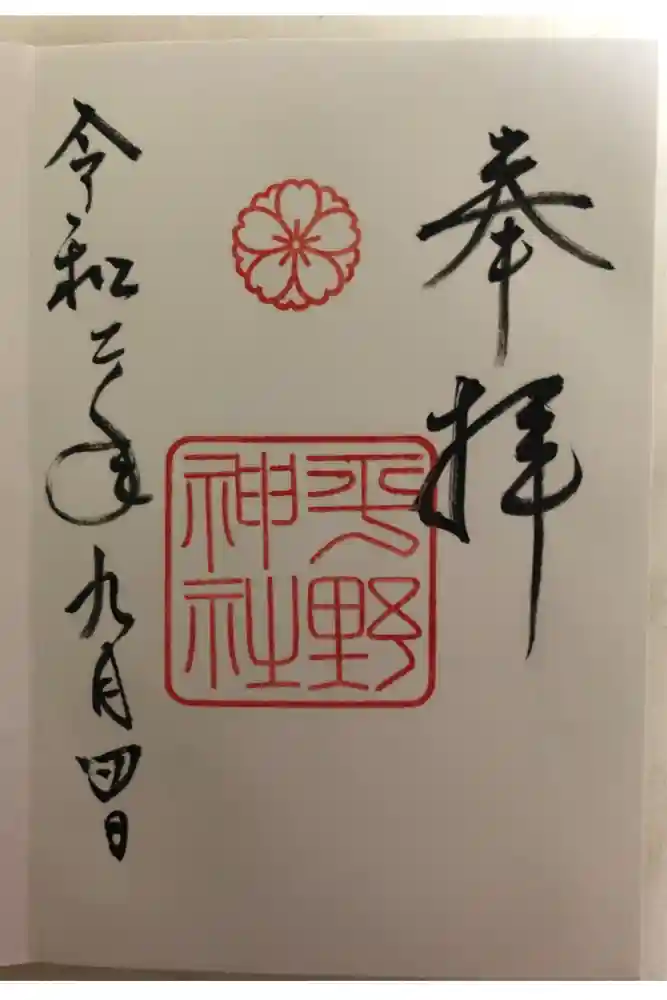 奉拝
平野
神社
令和二年九月四日